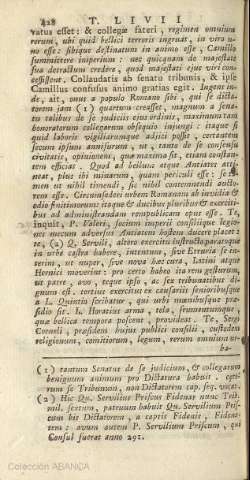 428 T. LIVII
vatus esset: & collegæ fateri, regimen omnium
rerum, ubi quid bellici terroris ingruat, in viro u-
no esse: sibique destinatum in animo esse, Camillo
summittere imperium: nec quicquam de majestate
sua detractum credere, quod majestati ejus viri con-
cessissent. Collaudatis ab senatu tribunis, & ipse
Camillus confusus animo gratias egit. Ingens in-
de, ait, onus a populo Romano sibi, qui se dicta-
torem jam (1) quartum creasset, magnum a sena-
tu talibus de se judiciis ejus ordinis, maximum tam
honoratorum collegarum obsequio injungi: itaque si
quid laboris vigiliarumque adjici posset, certantem
secum ipsum annisurum, ut, tanto de se consensu
civitatis, opinionem, quæ maxima sit, etiam constan-
tem efficiat. Quod ad bellum atque Antiates atti-
neat, plus ibi minarum, quam periculi esse: se ta-
men ut nihil timendi, sic nihil contemnendi aucto-
rem esse. Circumsederi urbem Romanam ab invidia &
odio finitimorum: itaque & ducibus pluribus & exerciti-
bus ad administrandam rempublicam opus esse. Te,
inquit, P. Valeri, socium imperii consiliique legio-
nes mecum adversus Antiatem hostem ducere placet:
te, (2) Q. Servili, altero exercitu instructo paratoque
in urbe castra habere, intentum, sive Etruria se in-
terim, ut nuper, sive nova hæc cura, Latini atque
Hernici moverint: pro certo habeo ita rem gesturum,
ut patre, avo, teque ipso, ac sex tribunatibus di-
gnum est. tertius exercitus ex causariis senioribusque
a L. Quintio scribatur, qui urbi mœnibusque præ-
sidio sit. L. Horatius arma, tela, frumentumque,
quæ belli tempora poscent, provideat. Te, Ser.
Corneli, præsidem hujus publici consilii, custodem
religionum, comitiorum, legum, rerum omnium ur-
ba-
(1) tantum Senatus de se judicium, & collegarum
benignum animum pro Dictatura habuit.
se Tribunum, non Dictatorem cap. seq. vocat.
(2) Hic Qu. Servilius Priscus Fidenas nunc Tri-
mil. sextum, patruum habuit Qu. Servilium Pris-
cum bis Dictatorem, a captis Fidenis, Fidena-
tem: avum autem P. Servilium Priscum, qui
Consul fuerat anno 291.
Colección ABANCA